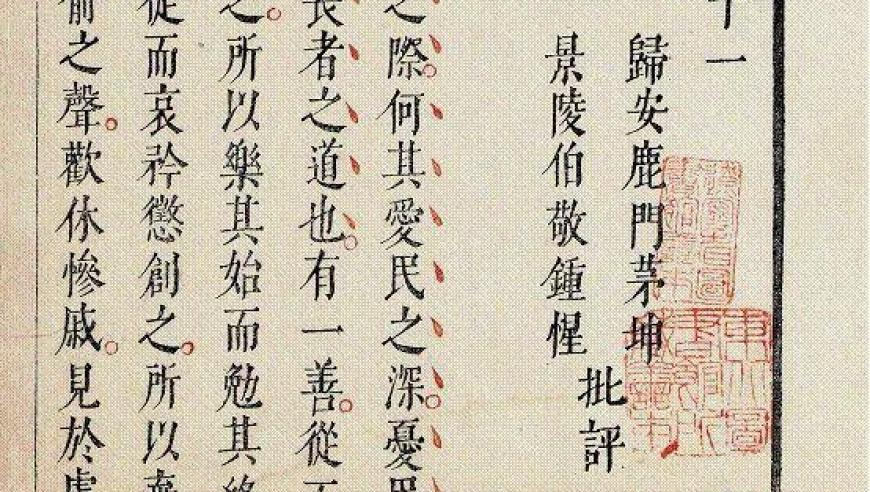 十一
歸安鹿門茅坤
景陵伯敬鍾惺
批評
之際。何其愛民之深。憂
長者之道也。有一善。從
之。所以樂其始而勉其
從而哀矜懲創之。所以棄
俞之聲。歡休慘戚。見於虞